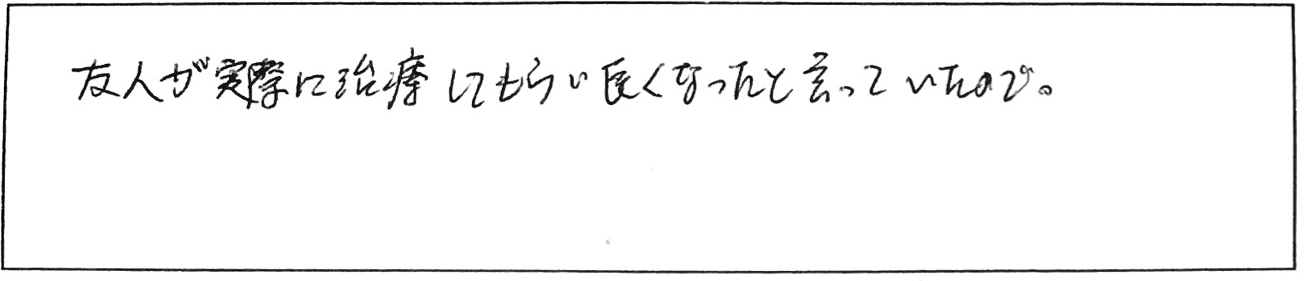 友人が実際に治療してもらい良くなったと言っていたので。